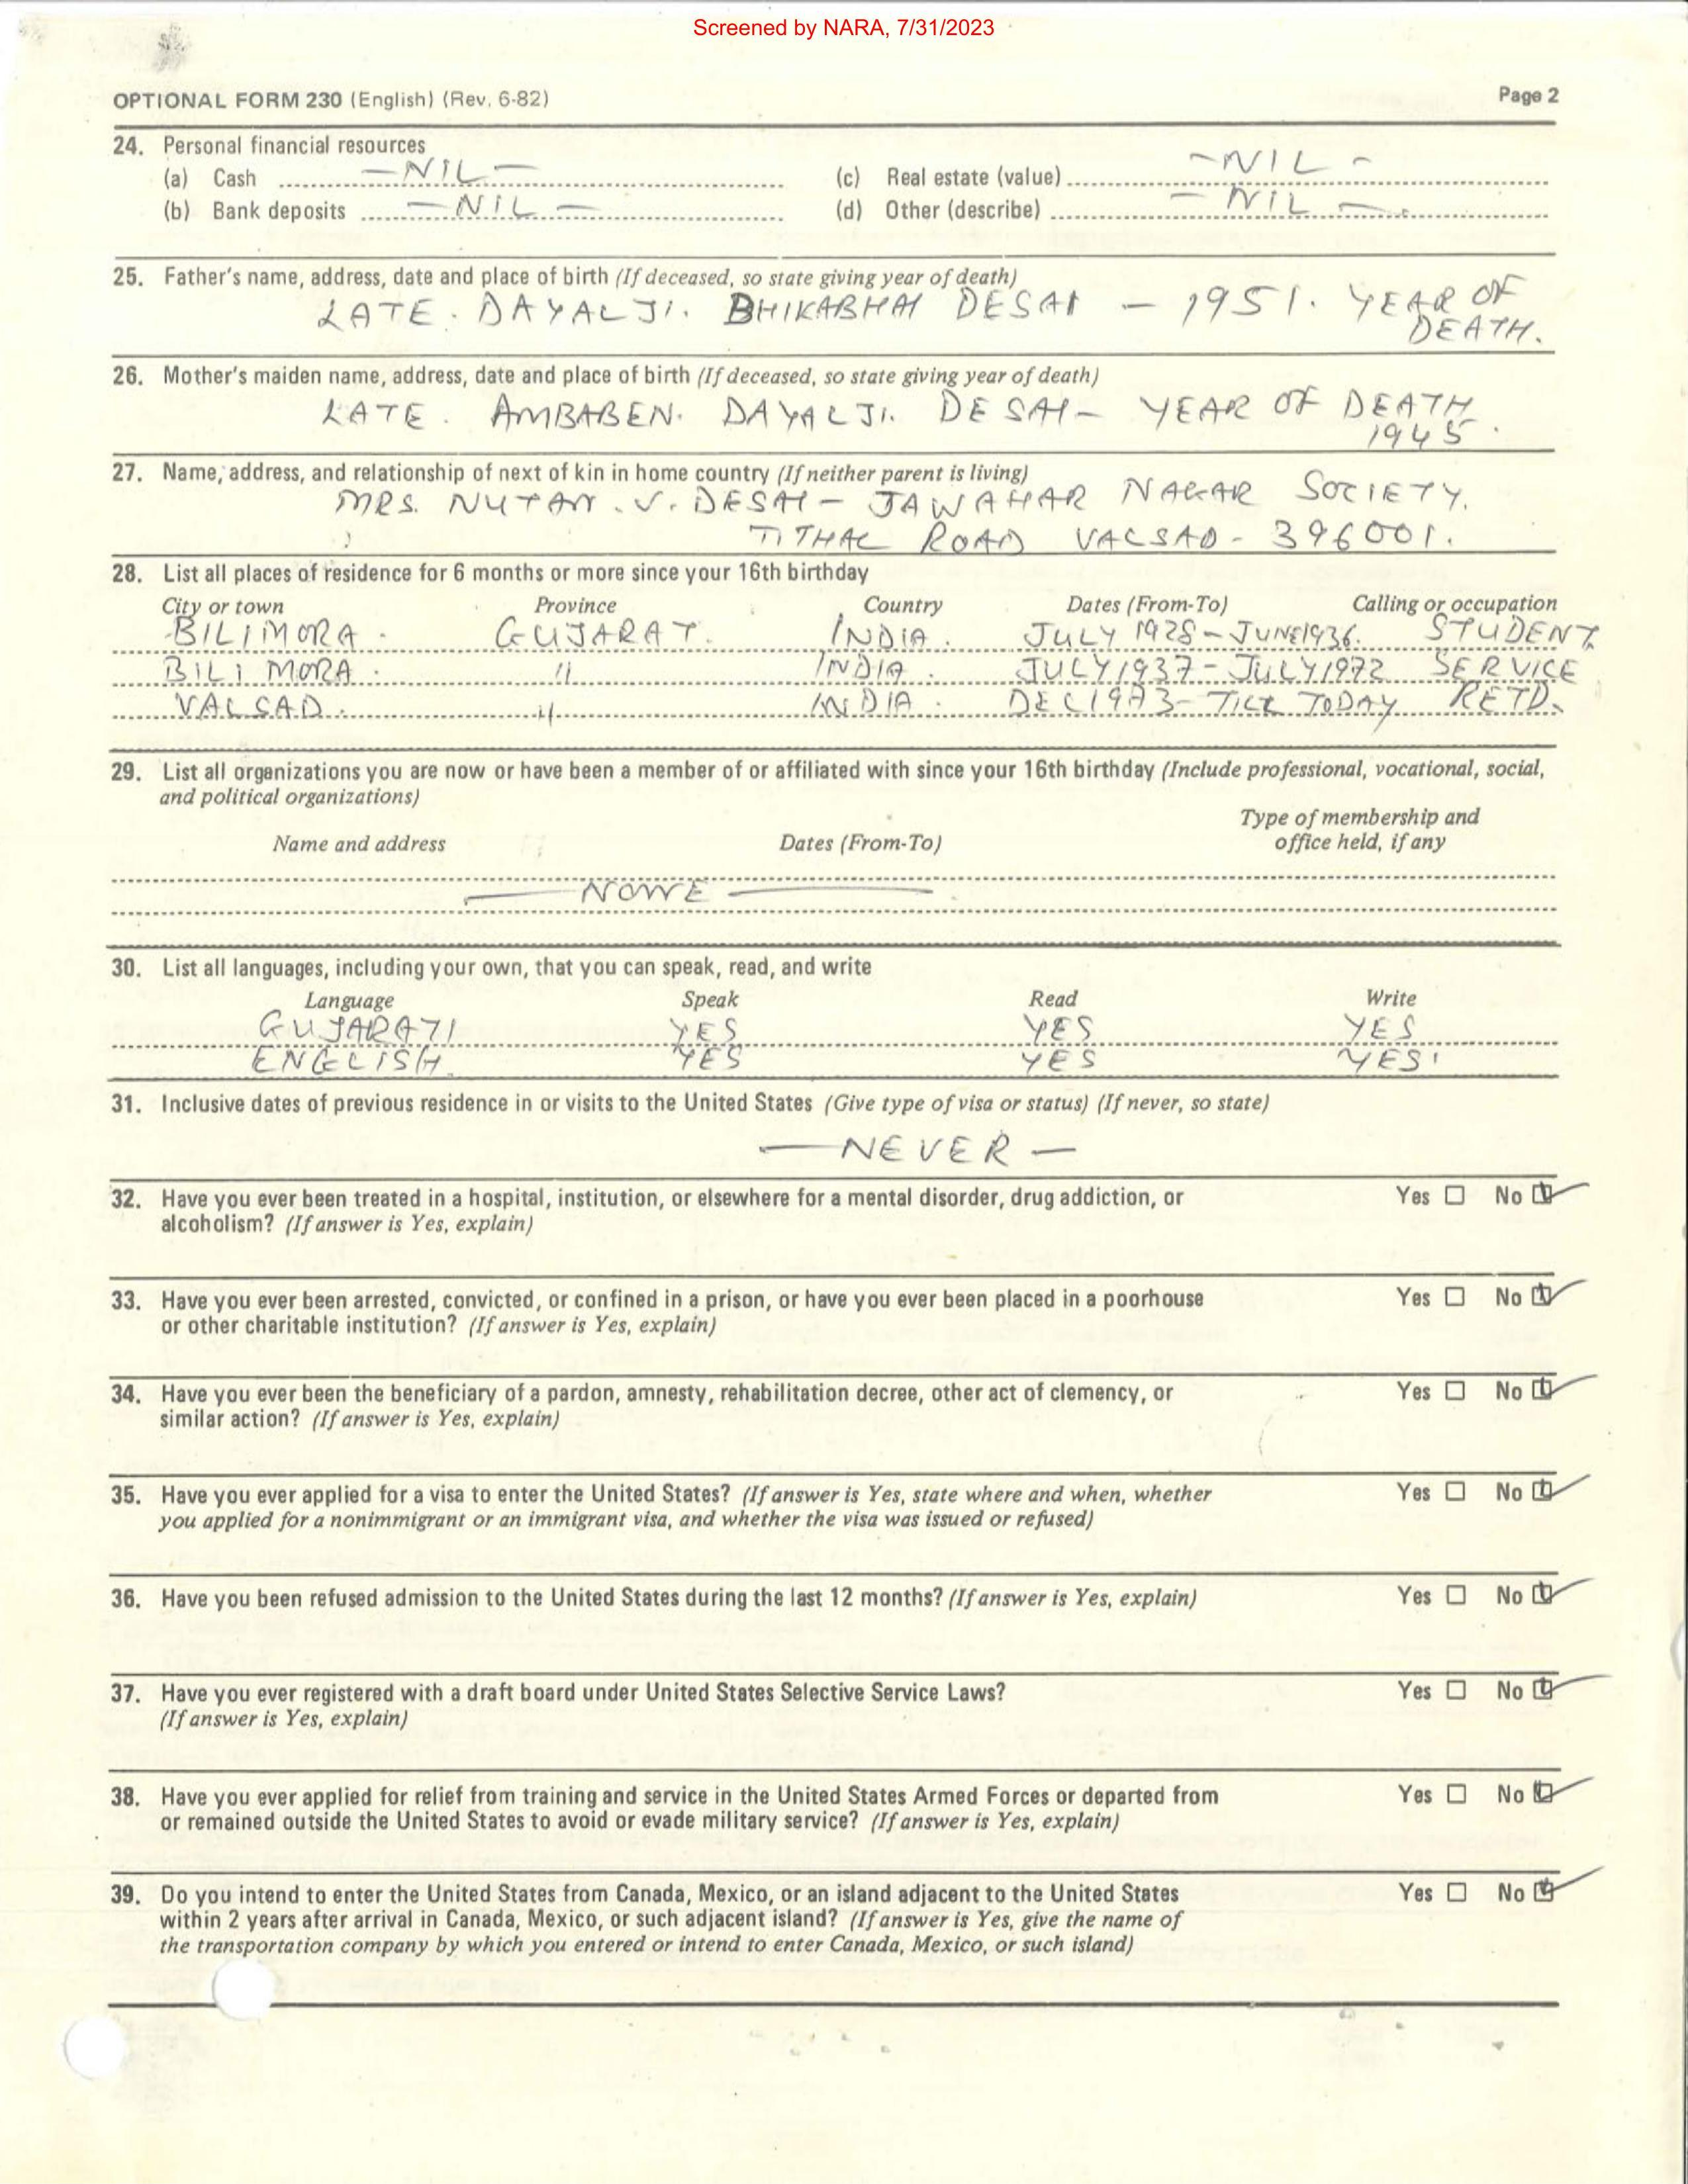 Screened by NARA, 7/31/2023
OPTIONAL FORM 230 (English) (Rev. 6-82) Page 2
24. Personal financial resources
(a) Cash — NIL — (c) Real estate (value) - NIL -
(b) Bank deposits — NIL — (d) Other (describe) — NIL —
25. Father's name, address, date and place of birth (If deceased, so state giving year of death)
LATE. DAYALJI. BHIKABHAI DESAI — 1951. YEAR OF
DEATH.
26. Mother's maiden name, address, date and place of birth (If deceased, so state giving year of death)
LATE. AMBABEN. DAYALJI. DESAI — YEAR OF DEATH
1945.
27. Name, address, and relationship of next of kin in home country (If neither parent is living)
MRS. NUTAN. V. DESAI — JAWAHAR NAGAR SOCIETY.
TITHAL ROAD VALSAD - 396001.
28. List all places of residence for 6 months or more since your 16th birthday
City or town Province Country Dates (From-To) Calling or occupation
BILIMORA. GUJARAT. INDIA. JULY 1928 - JUNE 1936. STUDENT
BILIMORA. " INDIA. JULY 1937 - JULY 1972 SERVICE
VALSAD. " INDIA. DEC 1973 - TILL TODAY RETD.
29. List all organizations you are now or have been a member of or affiliated with since your 16th birthday (Include professional, vocational, social,
and political organizations)
Type of membership and
Name and address Dates (From-To) office held, if any
— NONE —
30. List all languages, including your own, that you can speak, read, and write
Language Speak Read Write
GUJARATI YES YES YES
ENGLISH YES YES YES
31. Inclusive dates of previous residence in or visits to the United States (Give type of visa or status) (If never, so state)
— NEVER —
32. Have you ever been treated in a hospital, institution, or elsewhere for a mental disorder, drug addiction, or Yes No
alcoholism? (If answer is Yes, explain)
33. Have you ever been arrested, convicted, or confined in a prison, or have you ever been placed in a poorhouse Yes No
or other charitable institution? (If answer is Yes, explain)
34. Have you ever been the beneficiary of a pardon, amnesty, rehabilitation decree, other act of clemency, or Yes No
similar action? (If answer is Yes, explain)
35. Have you ever applied for a visa to enter the United States? (If answer is Yes, state where and when, whether Yes No
you applied for a nonimmigrant or an immigrant visa, and whether the visa was issued or refused)
36. Have you been refused admission to the United States during the last 12 months? (If answer is Yes, explain) Yes No
37. Have you ever registered with a draft board under United States Selective Service Laws? Yes No
(If answer is Yes, explain)
38. Have you ever applied for relief from training and service in the United States Armed Forces or departed from Yes No
or remained outside the United States to avoid or evade military service? (If answer is Yes, explain)
39. Do you intend to enter the United States from Canada, Mexico, or an island adjacent to the United States Yes No
within 2 years after arrival in Canada, Mexico, or such adjacent island? (If answer is Yes, give the name of
the transportation company by which you entered or intend to enter Canada, Mexico, or such island)